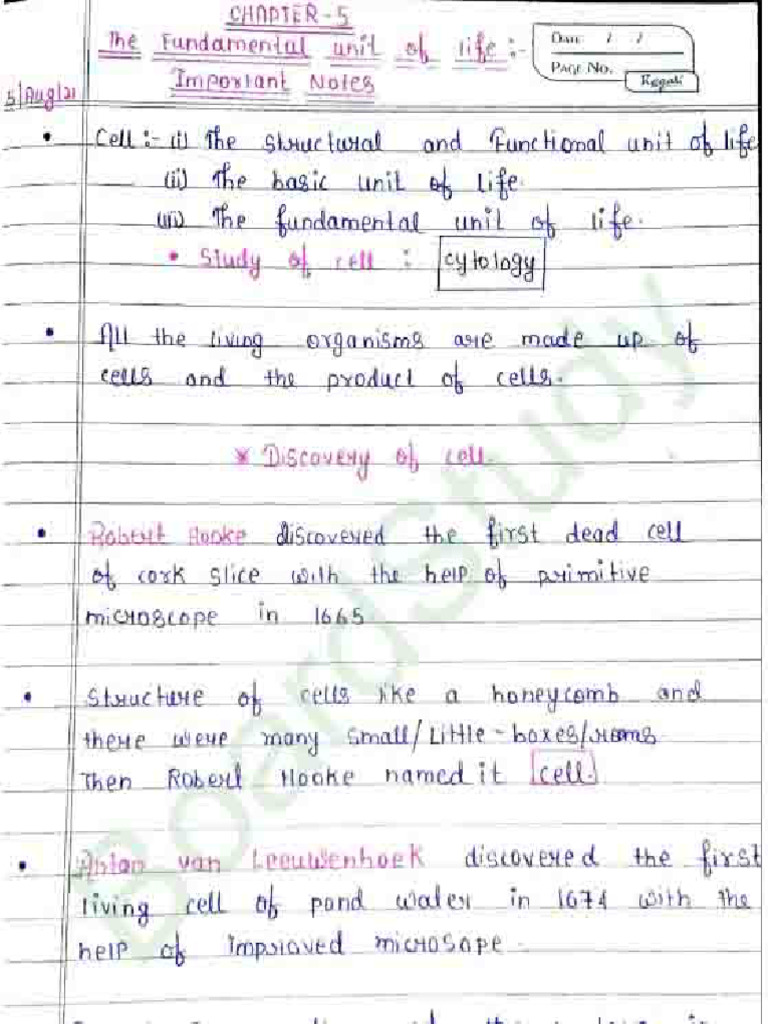 CHAPTER-5
The Fundamental unit of life :-
Important Notes
Date / /
PAGE NO.
5/Aug/21
• Cell :- (i) The structural and Functional unit of life
(ii) The basic unit of life.
(iii) The fundamental unit of life.
• Study of cell : cytology
• All the living organisms are made up of
cells and the product of cells.
* Discovery of cell.
• Robert Hooke discovered the first dead cell
of cork slice with the help of primitive
microscope in 1665
• Structure of cells like a honeycomb and
there were many small/Little-boxes/rooms
Then Robert Hooke named it cell.
• Anton van Leeuwenhoek discovered the first
living cell of pond water in 1674 with the
help of improved microsope.
BoardStudy